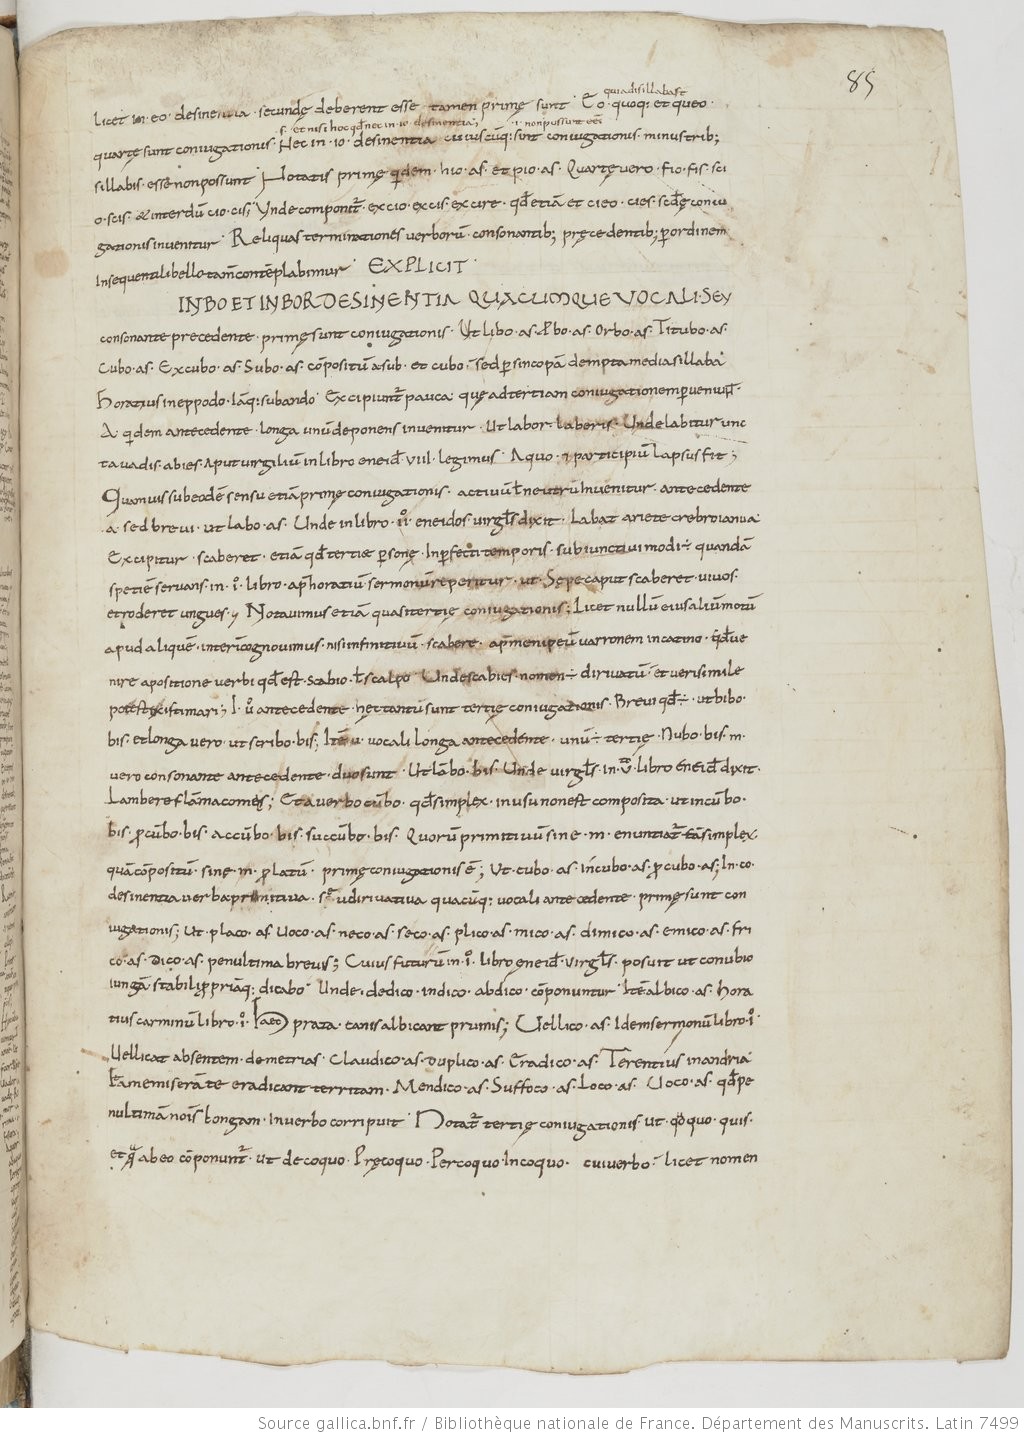 85
quia disillaba s̄t
licet in eo · desinentia · secundę deberent esse · tamen primę sunt · Eo · quoq; et queo ·
s̄ · et nisi hoc qđ nec in · io · desinentia;
.i. non possunt eē
quartę sunt coniugationis · Hec in · io · desinentia cuiuscūq; sunt coniugationis · minus trib;
sillabis · esse non possunt Notatis primę qidem · hio · as · et pio · as · Quartę vero · fio · fis · sci
o · scis · & interdū cio · cis; Vnde componit̄ · excio · excis · excire · qđ etiā et cieo · cies · scđę coniu
gationis invenitur · Reliquas terminationes verborū · consonantib; pręcedentib; per ordinem
In sequenti libello tam̄ contēplabimur EXPLICIT
IN BO ET IN BOR DESINENTIA QUACUMQUE VOCALI · SEV
consonante precedente · primę sunt coniugationis · Ut libo · as · Pbo · as · Orbo · as · Titubo · as ·
Cubo · as · Excubo · as · Subo · as · cōpositum a sub · et cubo · sed per sincopā dempta media sillaba
Horatius in eppodo · Iāq; subando · Excipiunt̄ pauca · quę ad tertiam coniugationem perveniunt
A · qidem antecedente · longa unū deponens invenitur · Ut labor · laberis · Unde labitur unc
ta vadis · abies · Aput virgiliū in libro eneid̄ · VIII · legimus · A quo · & participiū lapsus fit;
Quamvis sub eodē sensu etiā primę coniugationis · activū ł neutrū Invenitur · antecedente
· a · sed brevi · ut labo · as · Unde in libro · II · eneidos · virgłs dixit · Labat ariete crebro ianua
Excipitur · scaberet · etiā qđ tertiæ personę · Inperfecti temporis · subiunctivi modi ÷ quandā
spetiē servans · in · I · libro · ap̄ horatiū sermonum reperitur · ut · Sępe caput scaberet · vivos ·
et roderet ungues · Notavimus etiā quasi tertię coniugationis; Licet nullū eius aliū motū
apud aliquē · interi cognovimus · nisi infinitivū · scabere · ap̄ menipeū varronem in catino · qđ ve
nire apositione verbi qđ est · scabio · ł scalpo · Unde scabies · nomen ÷ dirivatū · et verisimile
potest existimari; I · v̊ antecedente · hęc tantū sunt tertię coniugationis · Brevi qđ ÷ · ut bibo ·
bis · et longa vero · ut scribo · bis; Itē · u · vocali longa antecedente · unū ÷ tertię · Nubo · bis · m ·
vero consonante antecedente · duo sunt · Ut lābo · bis · Unde virgłs · in · V · libro eneiđ dixit ·
Lambere flāma comęs; Et a verbo cūbo · qđ simplex · in usu non est composita · ut incūbo ·
bis · pcūbo · bis · Accūbo · bis · succūbo · bis · Quorū primitivū sine · m · enuntiat̄ tā simplex
quā cōpositū · sine · m · platū · primę coniugationis ē; Ut · cubo · as · Incubo · as · pcubo · as; In · co ·
desinentia verba primitiva · s̄ u dirivativa quacūq; vocali antecedente · primę sunt con
iugationis; Ut · placo · as · Voco · as · neco · as · seco · as · plico · as · mico · as · dimico · as · emico · as · fri
co · as · Dico · as · penultima brevis; Cuius futurum in · I · libro ęneiđ · virgłs · posuit ut conubio
iungā stabili · ppriāq; dicabo · Unde · dedico · indico · abdico · cōponuntur · Itē albico · as · Hora
tius carminū libro · I · Haec prata · canis albicant pruinis; Vellico · as · Idem sermonū libro · I ·
Vellicat absentem · demetrias · Claudico · as · Duplico · as · Eradico · as · Terentius in andria
me miserā te eradicant territam · Mendico · as · Suffoco · as · Loco · as · Voco · as · qđ pe
nultimā nois longam · in verbo corripuit · Notat̄ tertię coniugationis · ut · quoquo · quis ·
et q̄ ab eo cōponunt̄ · ut decoquo · Pręcoquo · Percoquo · Incoquo · cui verbo · licet nomen
Source gallica.bnf.fr / Bibliothèque nationale de France. Département des Manuscrits. Latin 7499